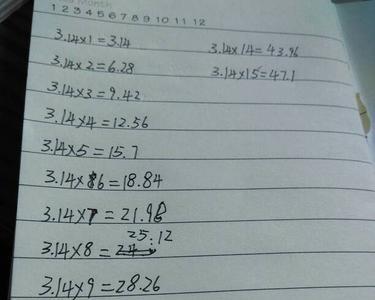 Month
1 2 3 4 5 6 7 8 9 10 11 12
3.14×1=3.14
3.14×14=43.96
3.14×2=6.28
3.14×15=47.1
3.14×3=9.42
3.14×4=12.56
3.14×5=15.7
3.14×6=18.84
3.14×7=21.98
25.12
3.14×8=24
3.14×9=28.26